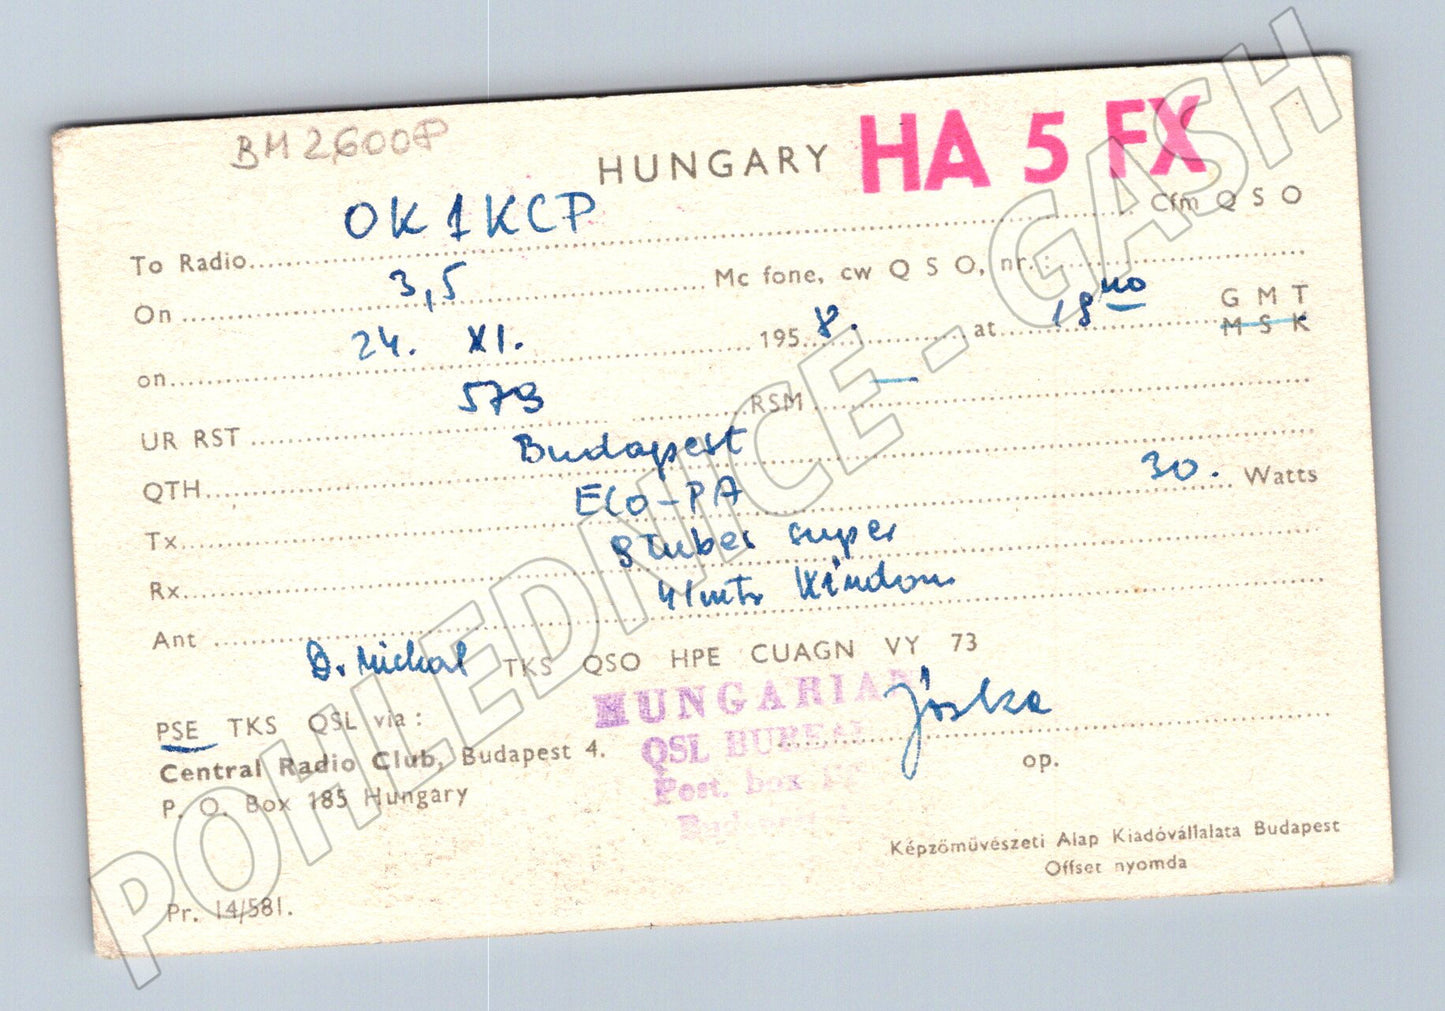 BM2600P
HUNGARY HA 5 FX
To Radio OK1KCP Cfm QSO
On 3,5 Mc fone, cw QSO, nr.
on 24. XI. 1958. at 18 00 GMT
MSK
UR RST 579 RSM —
QTH Budapest
Tx ECO-PA 30. Watts
Rx 8 tubes super
Ant 41 mtr Windom
D. Michal TKS QSO HPE CUAGN VY 73
PSE TKS QSL via:
Jóska
Central Radio Club, Budapest 4.
op.
P. O. Box 185 Hungary
HUNGARIAN
QSL BUREAU
Post. box
Budapest 4
Képzőművészeti Alap Kiadóvállalata Budapest
Offset nyomda
Pr. 14/581.
POHLEDNICE - GASH